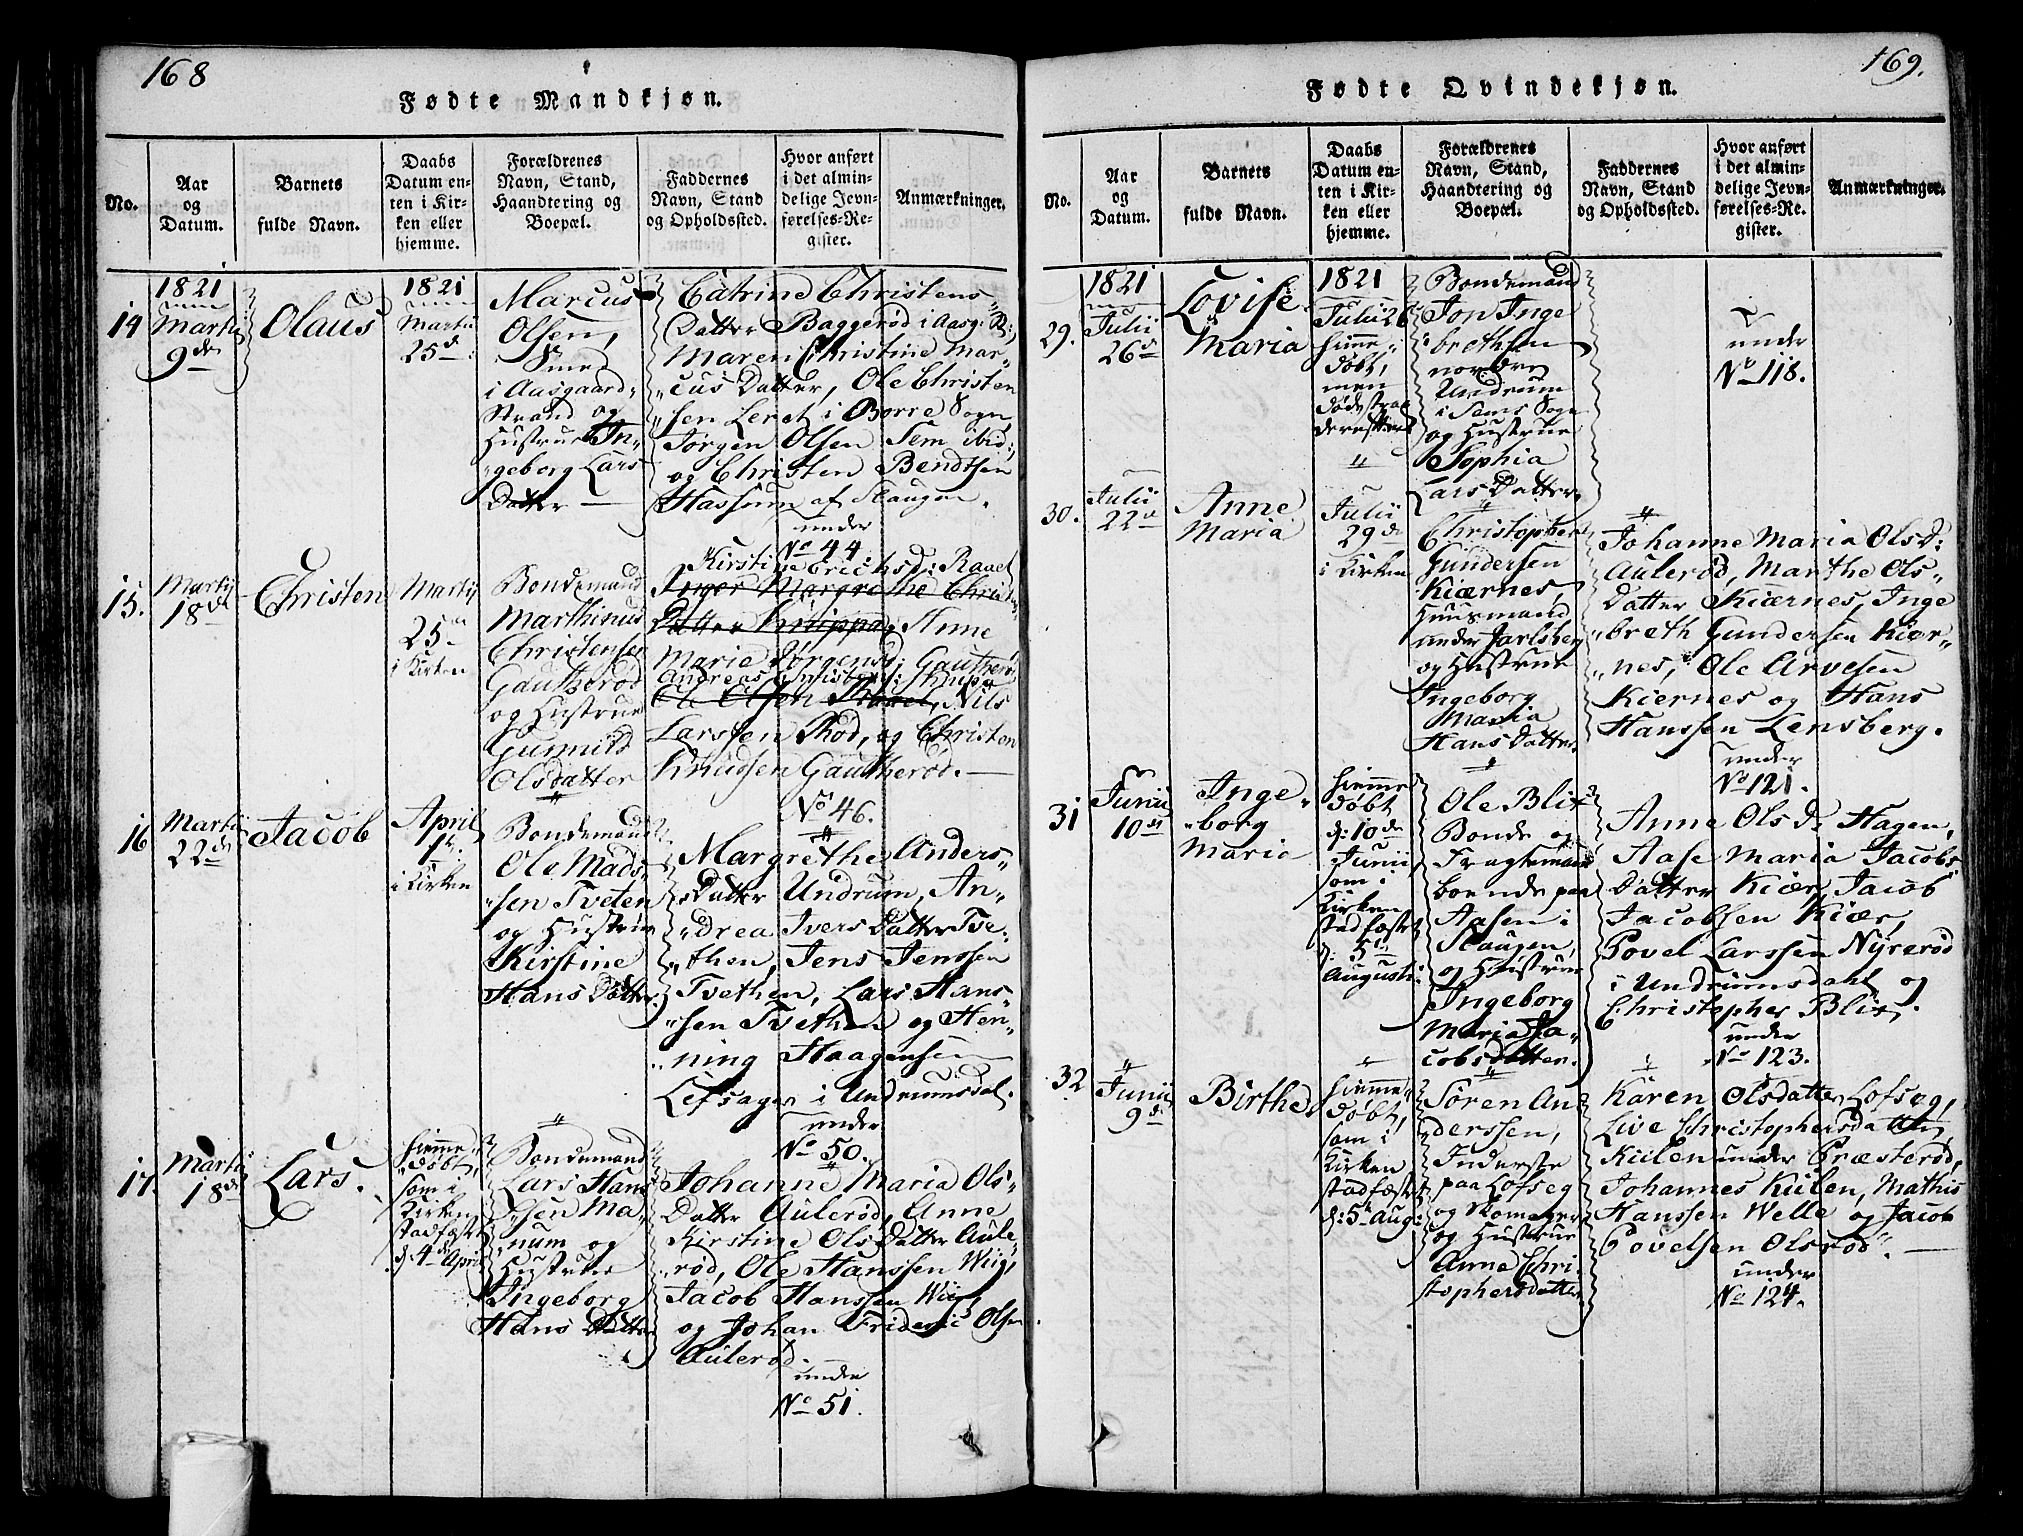 168
Fødte Mandkjøn.
No.
Aar
og
Datum.
Barnets
fulde Navn.
Daabs
Datum en-
ten i Kir-
ken eller
hjemme.
Forældrenes
Navn, Stand,
Haandtering og
Boepæl.
Faddernes
Navn, Stand
og Opholdssted.
Hvor anført
i det almin-
delige Jevn-
førelses-Re-
gister.
Anmærkninger.
14
1821
Martii
9de
Olaus
1821
Martii
25d
Marcus
Olsen,
i Aasgaard-
Strand og
Hustrue In-
geborg Lars
Datter
Catrine Christens
Datter Baggerød i Aasg: St:,
Maren Christine Mar-
cus Datter, Ole Christen
sen Leret i Borre Sogn,
Jørgen Olsen Sem ibid:,
og Christen Bendtsen
Hassum af Slaugen.
under
No 44.
15.
Martii
18de
Christen
Martij
25de
i Kirken
Bondemand
Marthinus
Christensen
Gautherød
og Hustrue
Gunnild
Olsdatter
Kirstine Erichsd: Raael
Inger Margrethe Christens
Datter Knippa, Anne
Marie Jørgensd: Gautherød
Andreas Knippa
Ole Olsen Raael, Nils
Larssen Rød, og Christen
Knudsen Gautherød.
No 46.
16
Martii
22de
Jacob
April
1st.
i Kirken
Bondemand
Ole Mads-
sen Tveten
og Hustrue
Kirstine
Hans Datter.
Margrethe Anders-
Datter Undrum, An-
drea Ivers Datter Tve-
then, Jens Jenssen
Tvethen, Lars Hans-
sen Tvethen og Hen-
ning Haagensen
Lefsager i Undrumsdal.
under
No 50.
17.
Martii
18de
Lars.
Hjemme-
døbt,
som i
Kirken
stadfæst
d: 4de April
Bondemand
Lars Hans
sen Ma-
num og
Hustrue
Ingeborg
Hans Datter
Johanne Maria Ols-
Datter Aulerød, Anne
Kirstine Ols Datter Aule-
rød, Ole Hanssen Wiig,
Jacob Hanssen Wiig,
og Johan Frideric Olsen
Aulerød.
under
No 51.
169.
Fødte Qvindekjøn.
No.
Aar
og
Datum.
Barnets
fulde Navn.
Daabs
Datum en-
ten i Kir-
ken eller
hjemme.
Forældrenes
Navn, Stand,
Haandtering og
Boepæl.
Faddernes
Navn, Stand
og Opholdssted.
Hvor anført
i det almin-
delige Jevn-
førelses-Re-
gister.
Anmærkninger.
29.
1821
Julii
26de
Lovise
Maria
1821
Julii 26
hjemme
døbt,
men
døde strax
derefter
Bondemand
Jon Inge
brethsen
nordre
Undrum
i Sems Sogn
og Hustrue
Sophia
Lars Datter
under
No 118.
30.
Julii
22de
Anne
Maria
Julii
29de
i Kirken
Christopher
Gundersen
Kiærnes,
Huusmand
under Jarlsberg
og Hustrue
Ingeborg
Maria
Hans Datter.
Johanne Maria Olsd:
Aulerød, Marthe Ols-
Datter Kiærnes, Inge
breth Gundersen Kiær-
nes, Ole Arvesen
Kiernes og Hans
Hanssen Lensberg.
under
No 121.
31
Junii
10de
Inge-
borg
Maria
hjemme
døbt
d: 10de
Junii
som i
Kirken
stadfæst
d: 5te
Augusti:
Ole Blix
Bonde og
Fragtemand
boende paa
Aasen i
Slaugen,
og Hustrue
Ingeborg
Maria Ja-
cobsdatter.
Anne Olsd. Hagen,
Aase Maria Jacobs
Datter Kiær, Jacob
Jacobsen Kiær,
Povel Larssen Nyrerød
i Undrumsdahl og
Christopher Blix.
under
No 123.
32
Junii
9de
Birthe.
Hjemme-
døbt,
som i
Kirken
stadfæst
d: 5te Aug:
Søren An
derssen,
Inderste
paa Lofseg
og Skomager
og Hustrue
Anne Chri-
stophersdatter
Karen Olsdatter Lofseg,
Live Christophersdatter,
Kiilen under Præsterød,
Johannes Kiilen, Mathis
Hanssen Welle og Jacob
Povelsen Olsrød.
under
No 124.